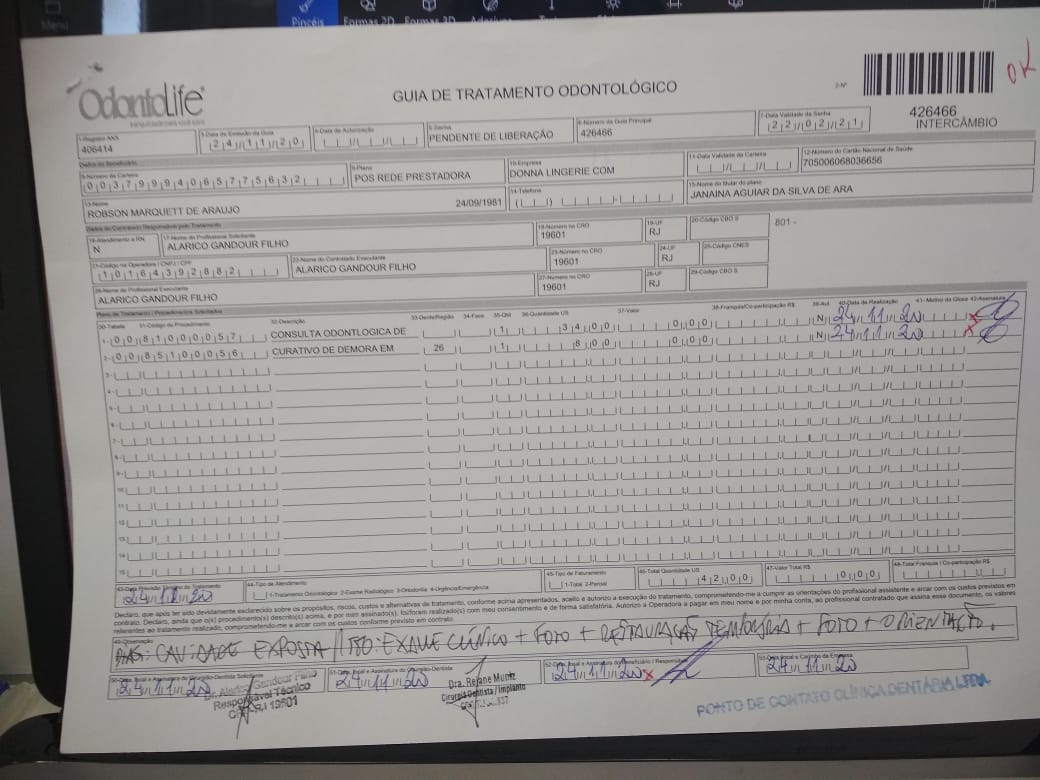 Menu
Pincéis Formas 2D Formas 3D
OdontoLife
GUIA DE TRATAMENTO ODONTOLÓGICO
2-Nº
OK
426466
INTERCÂMBIO
1-Registro ANS
406414
3-Data de Emissão da Guia
24/11/20
4-Data de Autorização
5-Senha
PENDENTE DE LIBERAÇÃO
6-Número da Guia Principal
426466
7-Data Validade da Senha
22/02/21
Dados do Beneficiário
8-Número da Carteira
00379994065775632
9-Plano
POS REDE PRESTADORA
10-Empresa
DONNA LINGERIE COM
11-Data Validade da Carteira
12-Número do Cartão Nacional de Saúde
705006068036656
13-Nome
ROBSON MARQUETT DE ARAUJO 24/09/1981
14-Telefone
15-Nome do titular do plano
JANAINA AGUIAR DA SILVA DE ARA
Dados do Contratado Responsável pelo Tratamento
16-Atendimento a RN
N
17-Nome do Profissional Solicitante
ALARICO GANDOUR FILHO
18-Número no CRO
19601
19-UF
RJ
20-Código CBO S
801 -
21-Código na Operadora / CNPJ / CPF
10164392882
22-Nome do Contratado Executante
ALARICO GANDOUR FILHO
23-Número no CRO
19601
24-UF
RJ
25-Código CNES
26-Nome do Profissional Executante
ALARICO GANDOUR FILHO
27-Número no CRO
19601
28-UF
RJ
29-Código CBO S
Plano de Tratamento / Procedimentos Solicitados
30-Tabela 31-Código do Procedimento 32-Descrição 33-Dente/Região 34-Face 35-Qtd 36-Quantidade US 37-Valor 38-Franquia/Co-participação R$ 39-Aut 40-Data de Realização 41- Motivo da Glosa 42-Assinatura
1- 00 81000057 CONSULTA ODONTLOGICA DE 1 34 00 0 00 N 24/11/20
2- 00 85100056 CURATIVO DE DEMORA EM 26 1 8 00 0 00 N 24/11/20
3-
4-
5-
6-
7-
8-
9-
10
11
12
13
14
15
24/11/20
44-Tipo de Atendimento
1-Tratamento Odontológico 2-Exame Radiológico 3-Ortodontia 4-Urgência/Emergência
45-Tipo de Faturamento
1-Total 2-Parcial
46-Total Quantidade US
42 00
47-Valor Total R$
0 00
48-Total Franquia / Co-participação R$
Declaro, que após ter sido devidamente esclarecido sobre os propósitos, riscos, custos e alternativas de tratamento, conforme acima apresentados, aceito e autorizo a execução do tratamento, comprometendo-me a cumprir as orientações do profissional assistente e arcar com os custos previstos em
contrato. Declaro, ainda que o(s) procedimento(s) descrito(s) acima, e por mim assinado(s), foi/foram realizado(s) com meu consentimento e de forma satisfatória. Autorizo a Operadora a pagar em meu nome e por minha conta, ao profissional contratado que assina esse documento, os valores
referentes ao tratamento realizado, comprometendo-me a arcar com os custos conforme previsto em contrato.
49-Observação
CAVIDADE EXPOSTA / TTO: EXAME CLÍNICO + FOTO + RESTAURAÇÃO TEMPORÁRIA + FOTO + ORIENTAÇÃO.
24/11/20
24/11/20
24/11/20
24/11/20
Gandour
Responsável Técnico
19601
Dra. Rejane Muniz
Cirurgiã Dentista / Implante
PONTO DE CONTATO CLÍNICA DENTÁRIA LTDA.